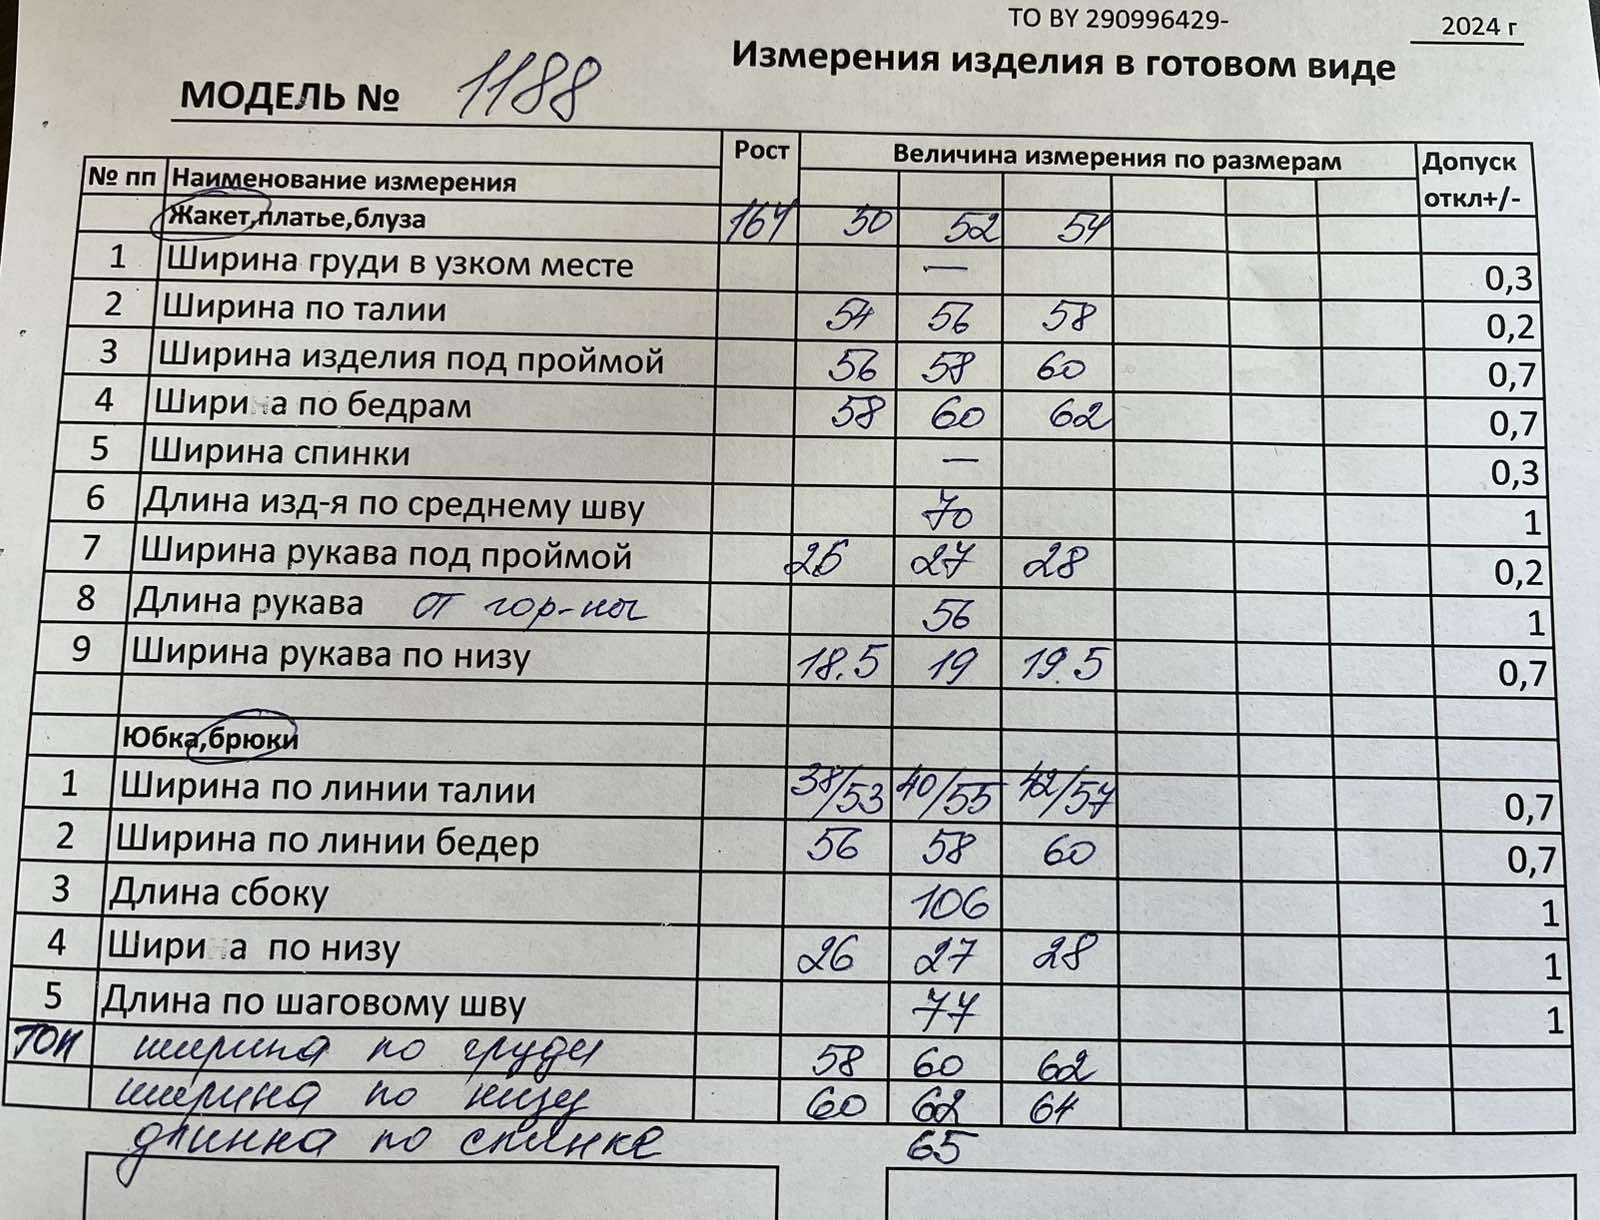 ТО BY 290996429-
2024 г
Измерения изделия в готовом виде
МОДЕЛЬ № 1188
№ пп Наименование измерения Рост Величина измерения по размерам Допуск откл+/-
Жакет,платье,блуза 164 50 52 54
1 Ширина груди в узком месте — 0,3
2 Ширина по талии 54 56 58 0,2
3 Ширина изделия под проймой 56 58 60 0,7
4 Шири а по бедрам 58 60 62 0,7
5 Ширина спинки — 0,3
6 Длина изд-я по среднему шву 70 1
7 Ширина рукава под проймой 26 27 28 0,2
8 Длина рукава от гор-ны 56 1
9 Ширина рукава по низу 18.5 19 19.5 0,7
Юбка,брюки
1 Ширина по линии талии 38/53 40/55 42/57 0,7
2 Ширина по линии бедер 56 58 60 0,7
3 Длина сбоку 106 1
4 Шири а по низу 26 27 28 1
5 Длина по шаговому шву 77 1
ТОП ширина по груди 58 60 62
ширина по низу 60 62 64
длинна по спинке 65